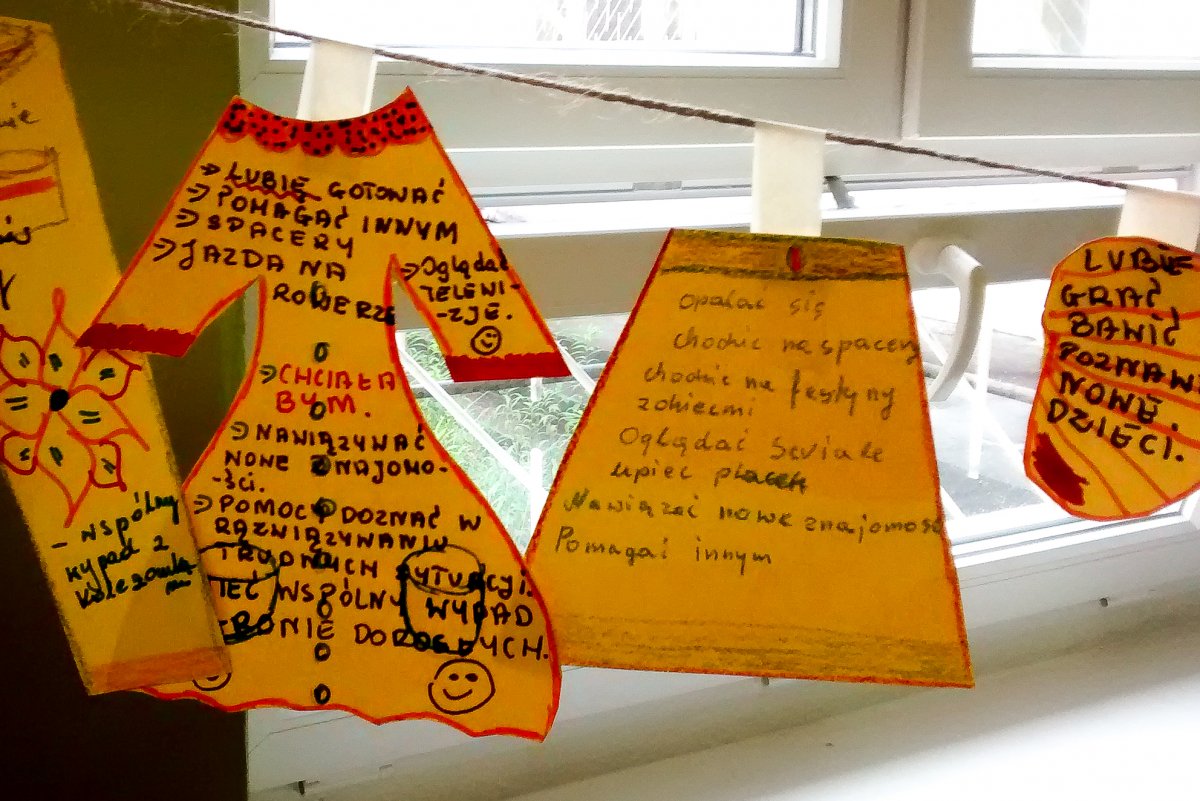 - wspólny
wypad z
koleżanka-
mi
→ LUBIĘ GOTOWAĆ
→ POMAGAĆ INNYM
→ SPACERY
→ JAZDA NA
ROWERZE
→ Oglądać
TELEWI-
-ZJE.
→ CHCIAŁA
BYM.
→ NAWIĄZYWAĆ
NOWE ZNAJOMO-
-ŚCI.
→ POMOC DOZNAĆ W
RAZWIĄZYWANIU
TRUDNYCH SYTUACYJ.
WSPÓLNY WYPAD
DOROSŁYCH.
opalać się
chodzić na spacery
chodzić na festyny
z dziećmi
Oglądać Seriale
upiec placek
Nawiązać nowe znajomość
Pomagać innym
LUBIĘ
GRAĆ
BAWIĆ
POZNAWA
NOWE
DZIECI.